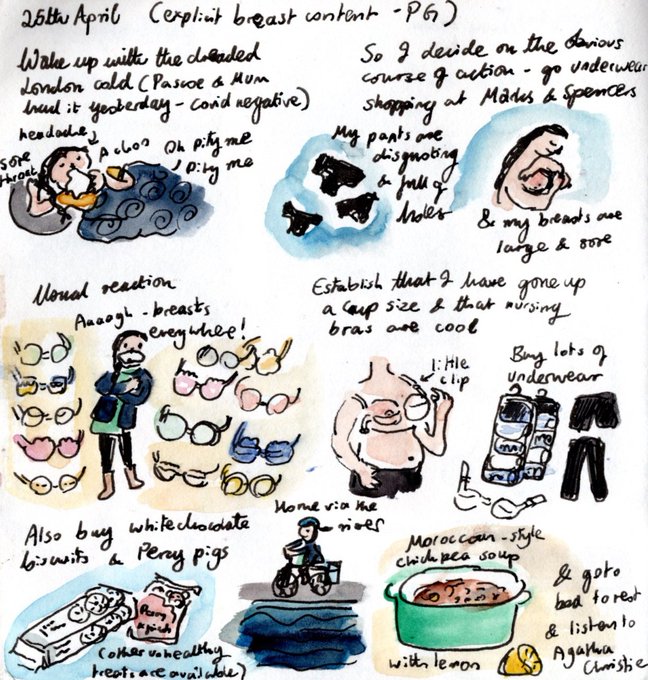 25th April (explicit breast content - PG)
Wake up with the dreaded
London cold (Pascoe & Mum
had it yesterday - covid negative)
headache
sore
throat
Achoo
Oh pity me
pity me
So I decide on the obvious
course of action - go underwear
shopping at Marks & Spencers
My pants are
disgusting
& full of
holes
& my breasts are
large & sore
Usual reaction
Aaaogh - breasts
everywhere!
Establish that I have gone up
a cup size & that nursing
bras are cool
little
clip
Buy lots of
underwear
Also buy white chocolate
biscuits & Percy pigs
Percy
pigs
(other unhealthy
treats are available)
Home via the
river
Moroccan-style
chickpea soup
with lemon
& go to
bed to rest
& listen to
Agatha
Christie